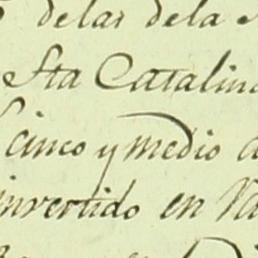 delas dela
Sta Catalina
cinco y medio
invertido en